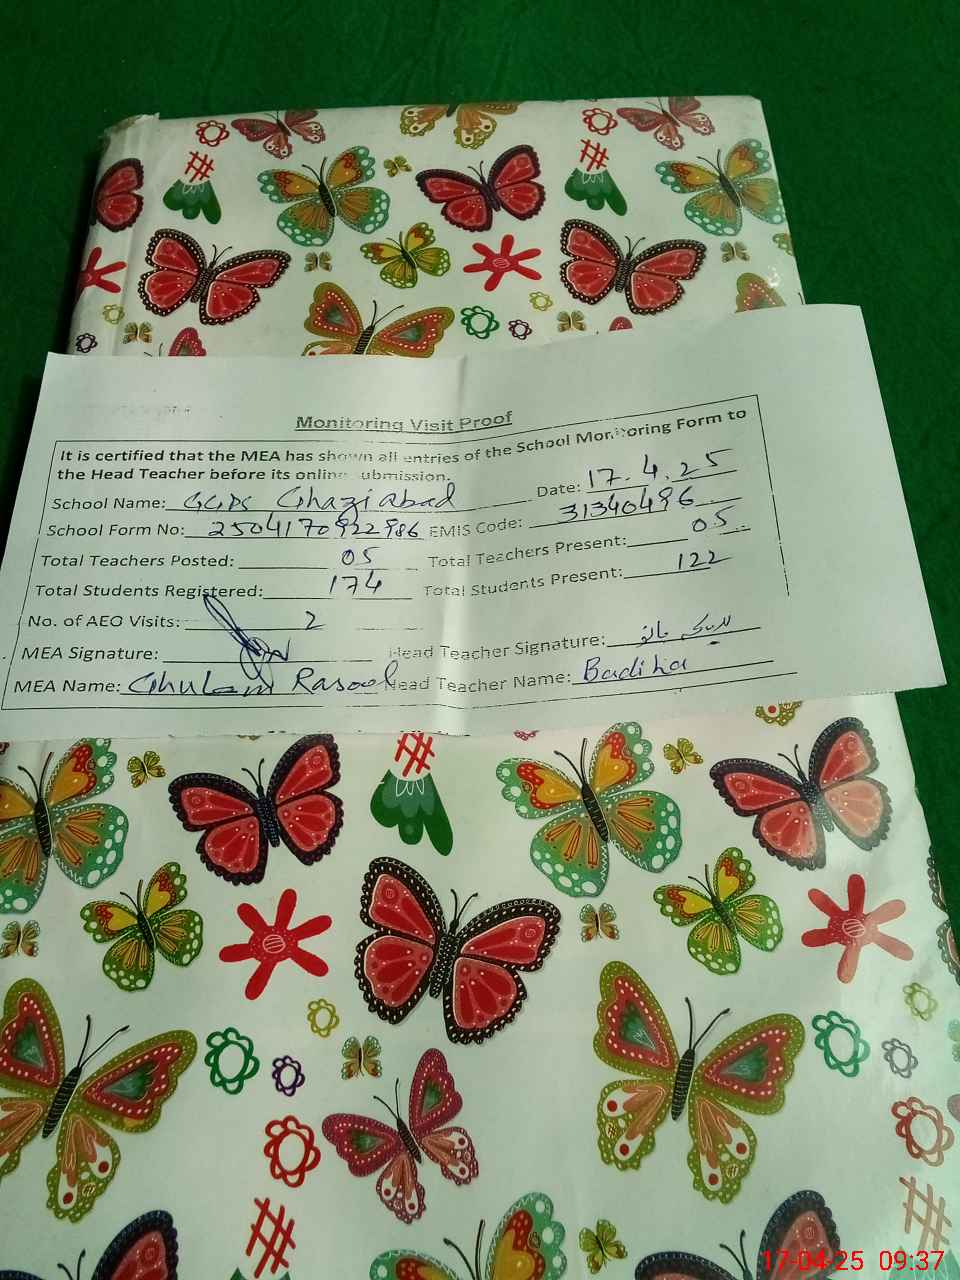 Monitoring Visit Proof
It is certified that the MEA has shown all entries of the School Monitoring Form to
the Head Teacher before its online submission.
School Name: GGPS Ghaziabad Date: 17.4.25
School Form No: 2504170922986 EMIS Code: 31340496
Total Teachers Posted: 05 Total Teachers Present: 05
Total Students Registered: 174 Total Students Present: 122
No. of AEO Visits: 2
MEA Signature: Head Teacher Signature:
MEA Name: Ghulam Rasool Head Teacher Name: Badiha
17-04-25 09:37